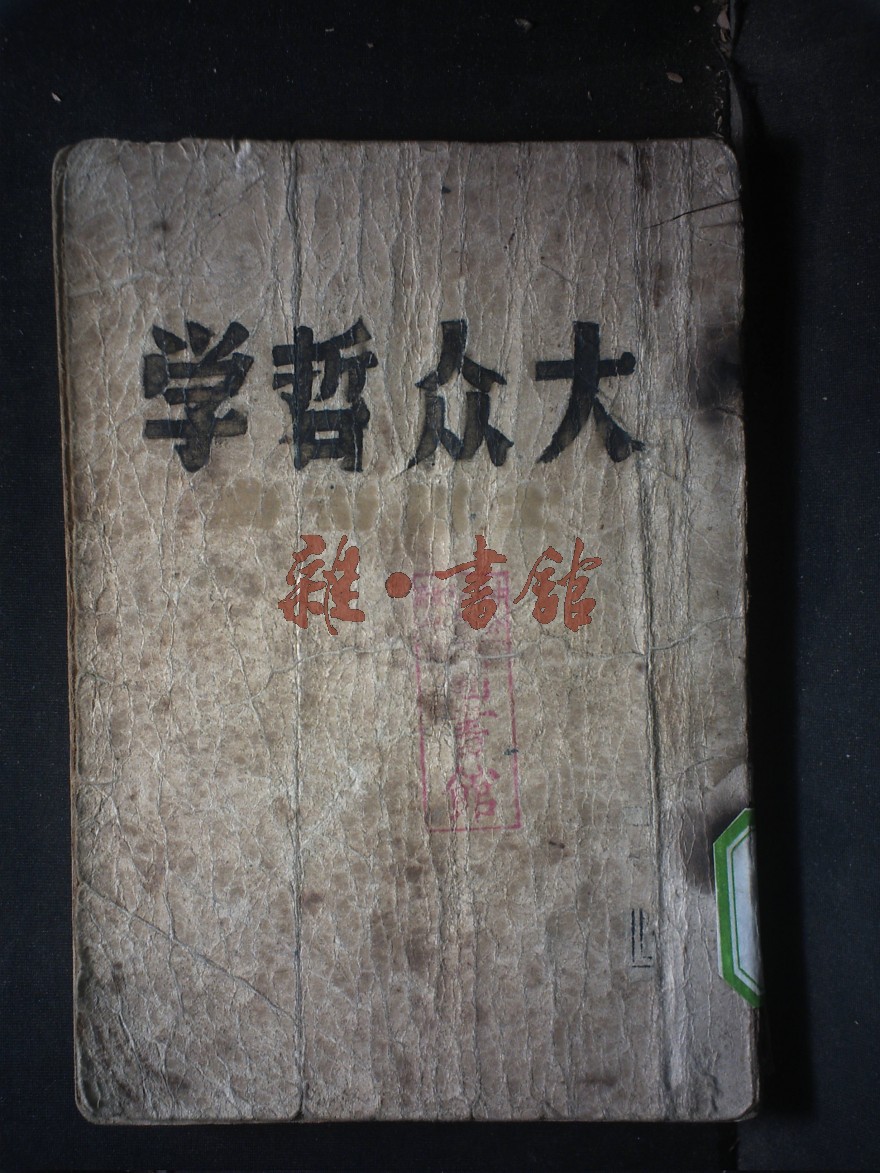 大众哲学
雜·書館
書館